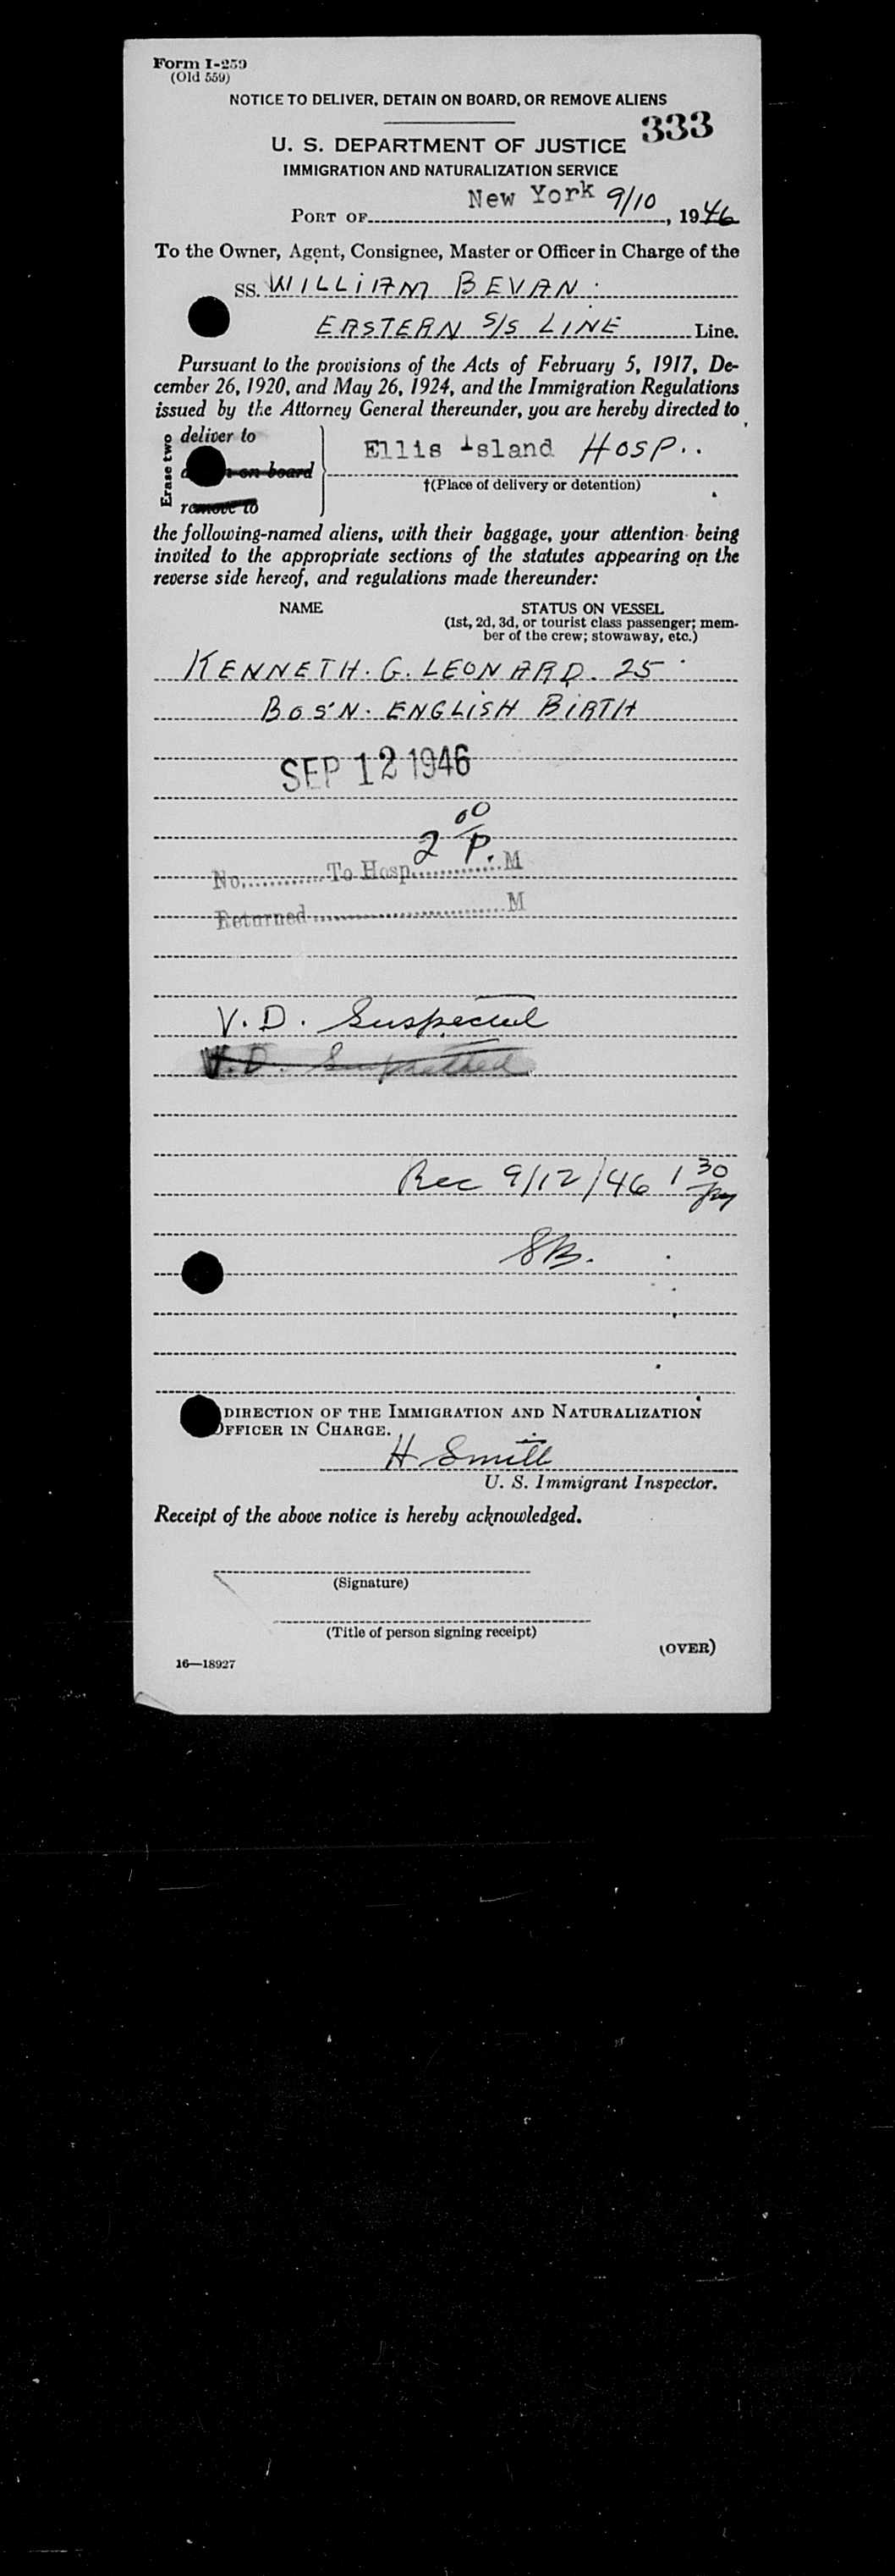 Form I-259
(Old 559)
NOTICE TO DELIVER, DETAIN ON BOARD, OR REMOVE ALIENS
333
U. S. DEPARTMENT OF JUSTICE
IMMIGRATION AND NATURALIZATION SERVICE
PORT OF New York 9/10, 1946
To the Owner, Agent, Consignee, Master or Officer in Charge of the
SS. WILLIAM BEVAN.
EASTERN S/S LINE Line.
Pursuant to the provisions of the Acts of February 5, 1917, De-
cember 26, 1920, and May 26, 1924, and the Immigration Regulations
issued by the Attorney General thereunder, you are hereby directed to
Erase two
deliver to
on board
remove to
Ellis Island HOSP..
†(Place of delivery or detention)
the following-named aliens, with their baggage, your attention being
invited to the appropriate sections of the statutes appearing on the
reverse side hereof, and regulations made thereunder:
NAME STATUS ON VESSEL
(1st, 2d, 3d, or tourist class passenger; mem-
ber of the crew; stowaway, etc.)
KENNETH. G. LEONARD. 25
BOS'N. ENGLISH BIRTH
SEP 12 1946
No. To Hosp. 2 00 P. M
Returned M
V. D. Suspected
V. D.
Rec 9/12/46 1 30 pm
SB.
DIRECTION OF THE IMMIGRATION AND NATURALIZATION
OFFICER IN CHARGE.
H Smith
U. S. Immigrant Inspector.
Receipt of the above notice is hereby acknowledged.
(Signature)
(Title of person signing receipt)
(OVER)
16—18927